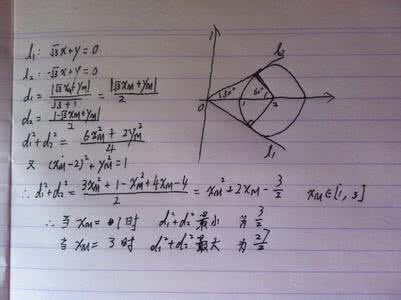 l₁: √3x+y=0
l₂: -√3x+y=0
d₁ = |√3xM+yM| / √3+1 = |√3xM+yM| / 2
d₂ = |-√3xM+yM| / 2
d₁²+d₂² = 6xM²+2yM² / 4
又 (xM-2)²+yM²=1
∴ d₁²+d₂² = 3xM²+1-xM²+4xM-4 / 2 = xM²+2xM-3/2 xM∈[1,3]
∴ 当 xM=1时 d₁²+d₂² 最小 为 3/2
当 xM=3时 d₁²+d₂² 最大 为 27/2
l₂
30°
60°
0
1
2
l₁